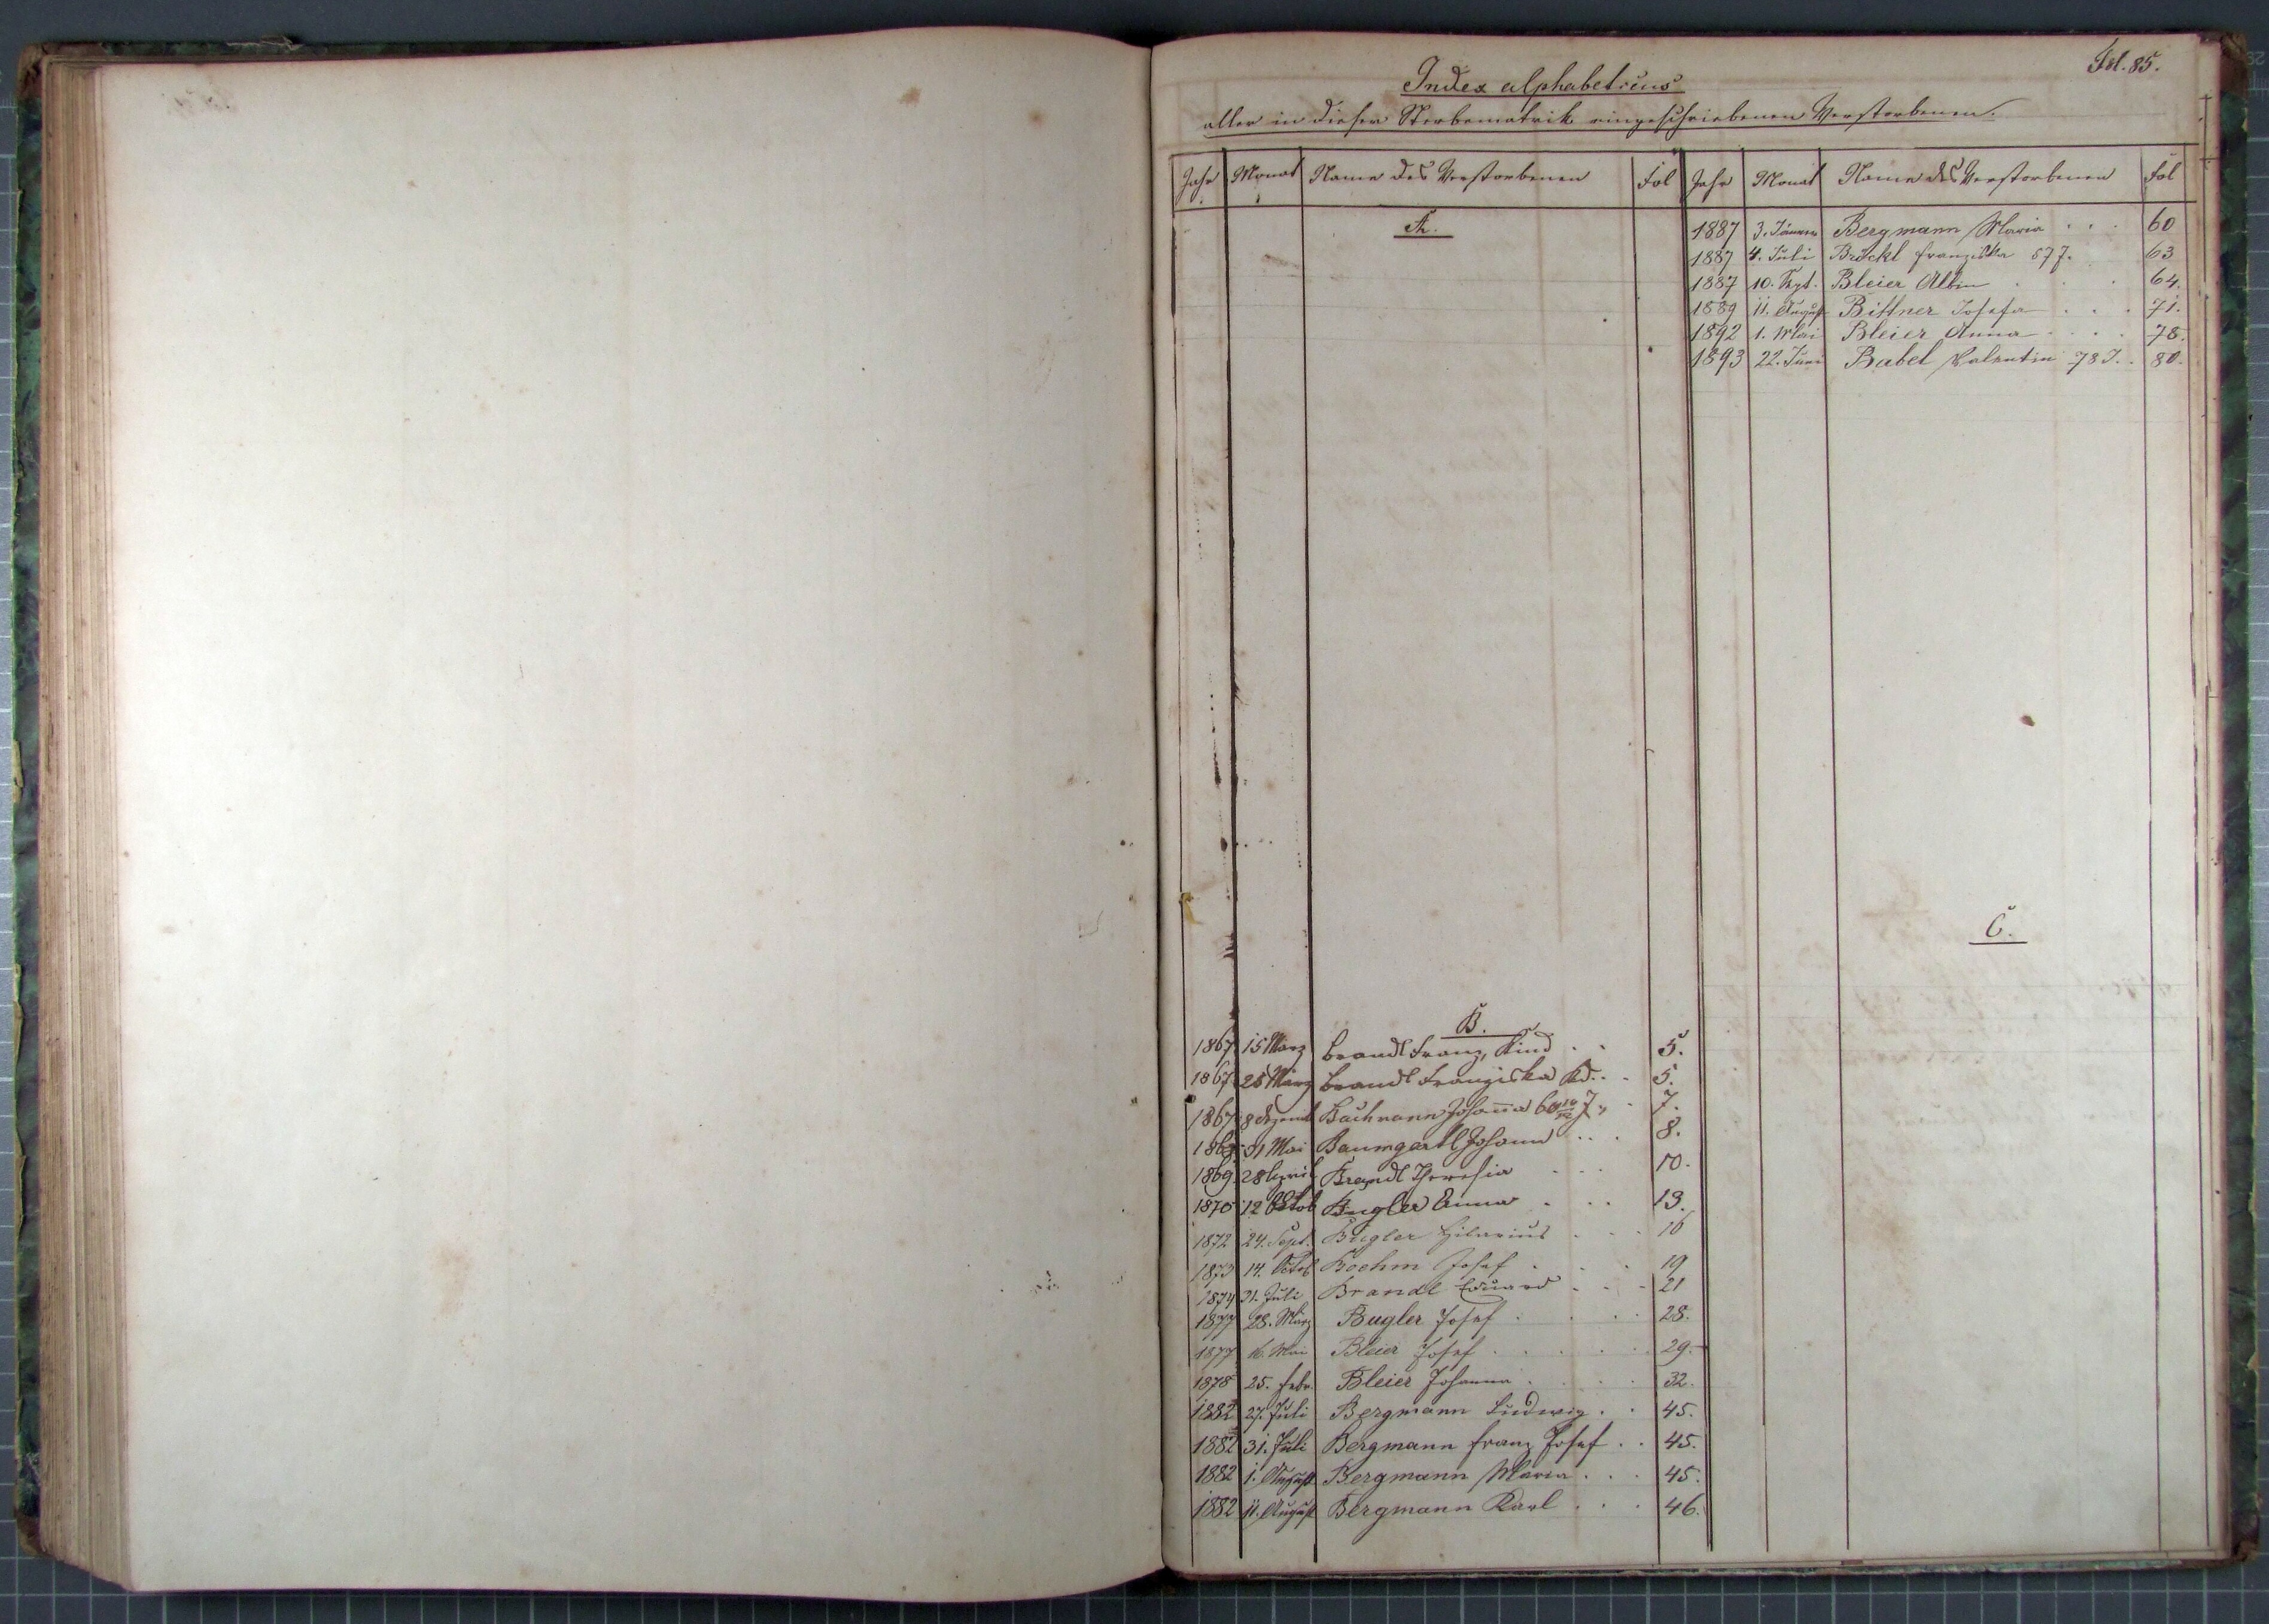 Fol. 85.
Index alphabeticus
aller in dieser Sterbematrik eingeschriebenen Verstorbenen.
Jahr Monat Name des Verstorbenen Fol
A.
B.
1867 15 März Brandl Franz, Kind . . 5.
1867 25 März Brandl Franziska Kd. . . 5.
1867 8 Dezemb Bachmann Johanna 60 J. 7.
1868 31 Mai Baumgartl Johann . . . 8.
1869 28 April Brandl Theresia . . . 10.
1870 12 Octob Bugler Anna . . . 13.
1872 24. Sept. Bugler Hilarius . . . 16
1873 14. Octob Boehm Josef . . . 19
1874 31. Juli Brandl Eduard . . . 21
1877 28. März Bugler Josef . . . . 28.
1877 16. Mai Bleier Josef . . . . . 29.
1878 25. Febr. Bleier Johanna . . . . 32.
1882 27. Juli Bergmann Ludwig . . 45.
1882 31. Juli Bergmann Franz Josef . . 45.
1882 1. August Bergmann Maria . . . 45.
1882 11. August Bergmann Karl . . . 46.
Jahr Monat Name des Verstorbenen Fol
1887 3. Jänner Bergmann Maria . . . 60
1887 4. Juli Bröckl Franziska 57 J. 63
1887 10. Sept. Bleier Albin . . . 64.
1889 11. August Bittner Josefa . . . 71.
1892 1. Mai Bleier Anna . . . . 78.
1893 22. Juni Babel Valentin 78 J. . 80.
C.